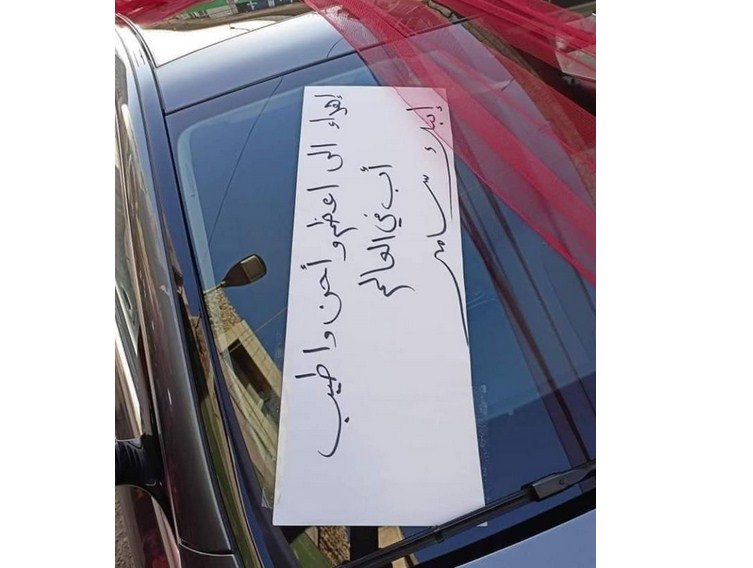 إهداء الى اعظم وأحن واطيب
أب في العالم
إبنك سامر